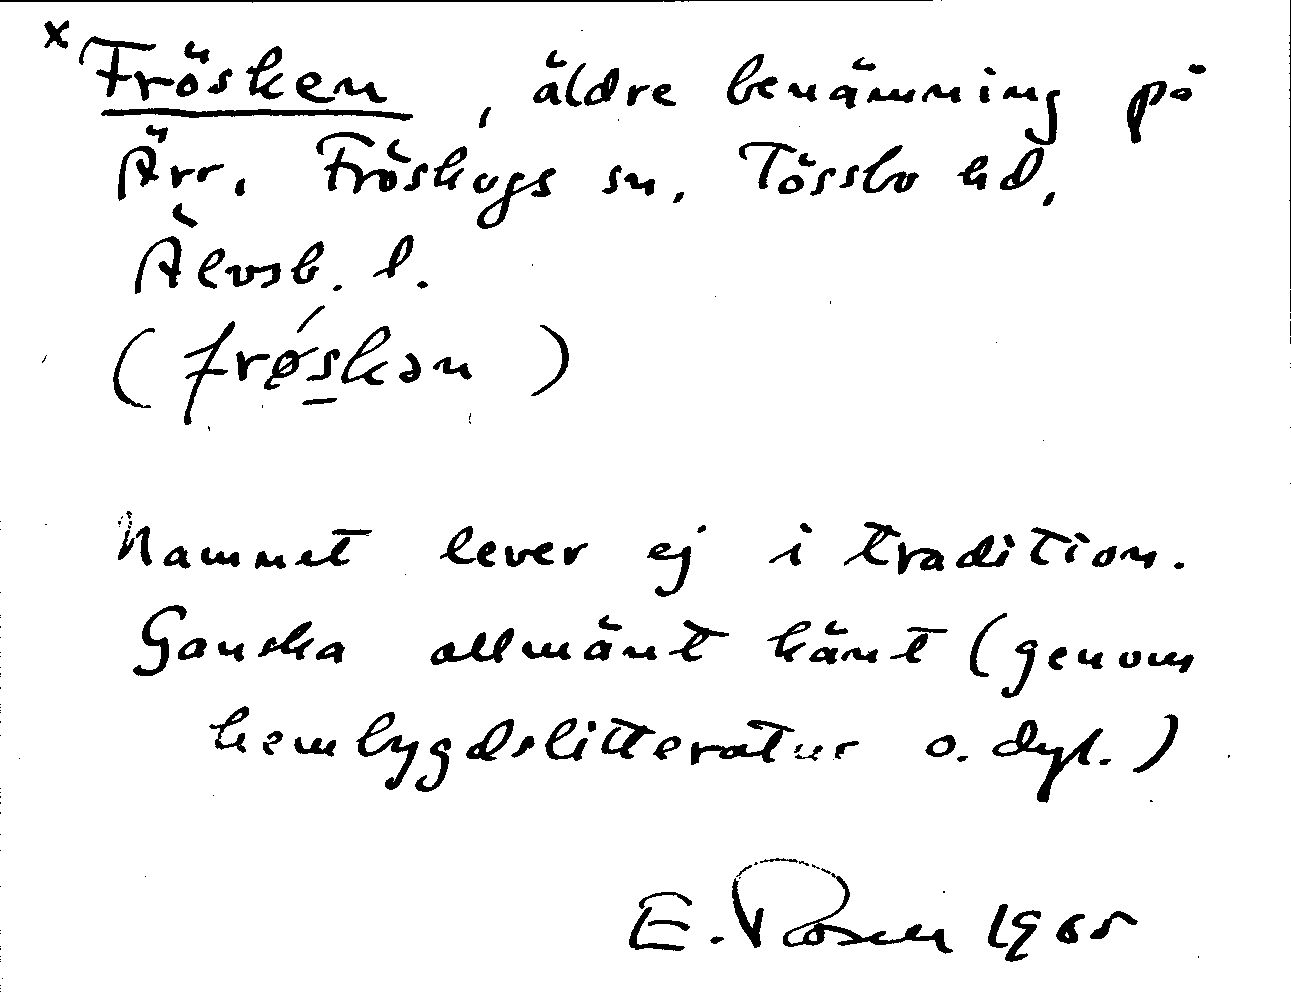 x Frösken, äldre benämning på
Ärr, Fröskogs sn, Tössbo hd,
Älvsb. l.
(frǿskən)
Namnet lever ej i tradition.
Ganska allmänt känt (genom
hembygdslitteratur o. dyl.)
E. Rosén 1965